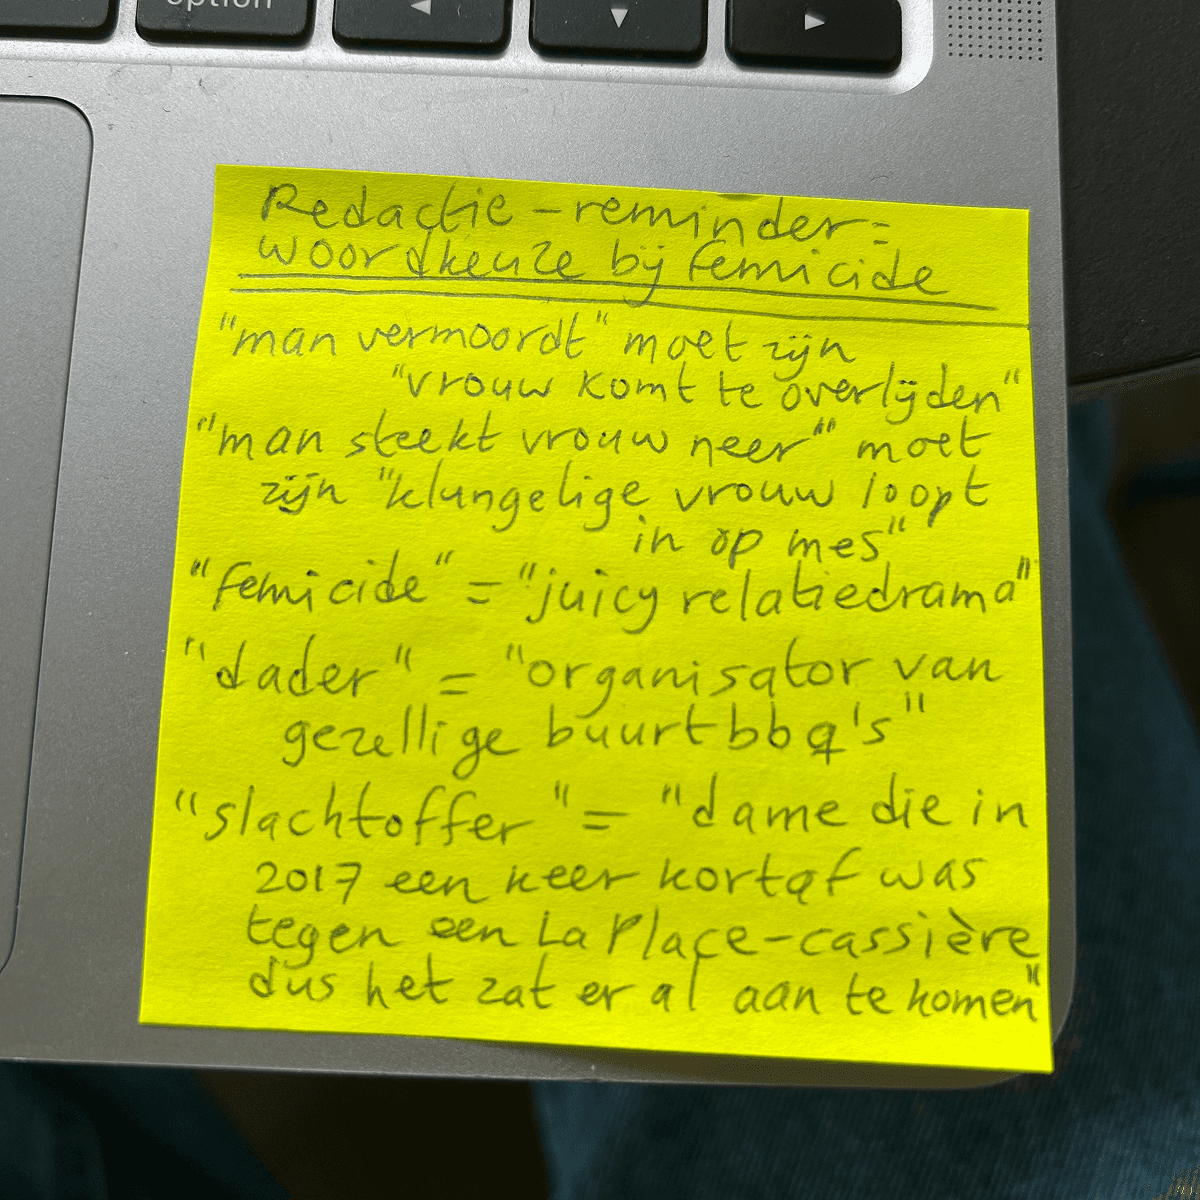 option
◄ ▼ ►
Redactie-reminder:
woordkeuze bij femicide
"man vermoordt" moet zijn
"vrouw komt te overlijden"
"man steekt vrouw neer" moet
zijn "klungelige vrouw loopt
in op mes"
"femicide" = "juicy relatiedrama"
"dader" = "organisator van
gezellige buurtbbq's"
"slachtoffer" = "dame die in
2017 een keer kortaf was
tegen een La Place-cassière
dus het zat er al aan te komen"